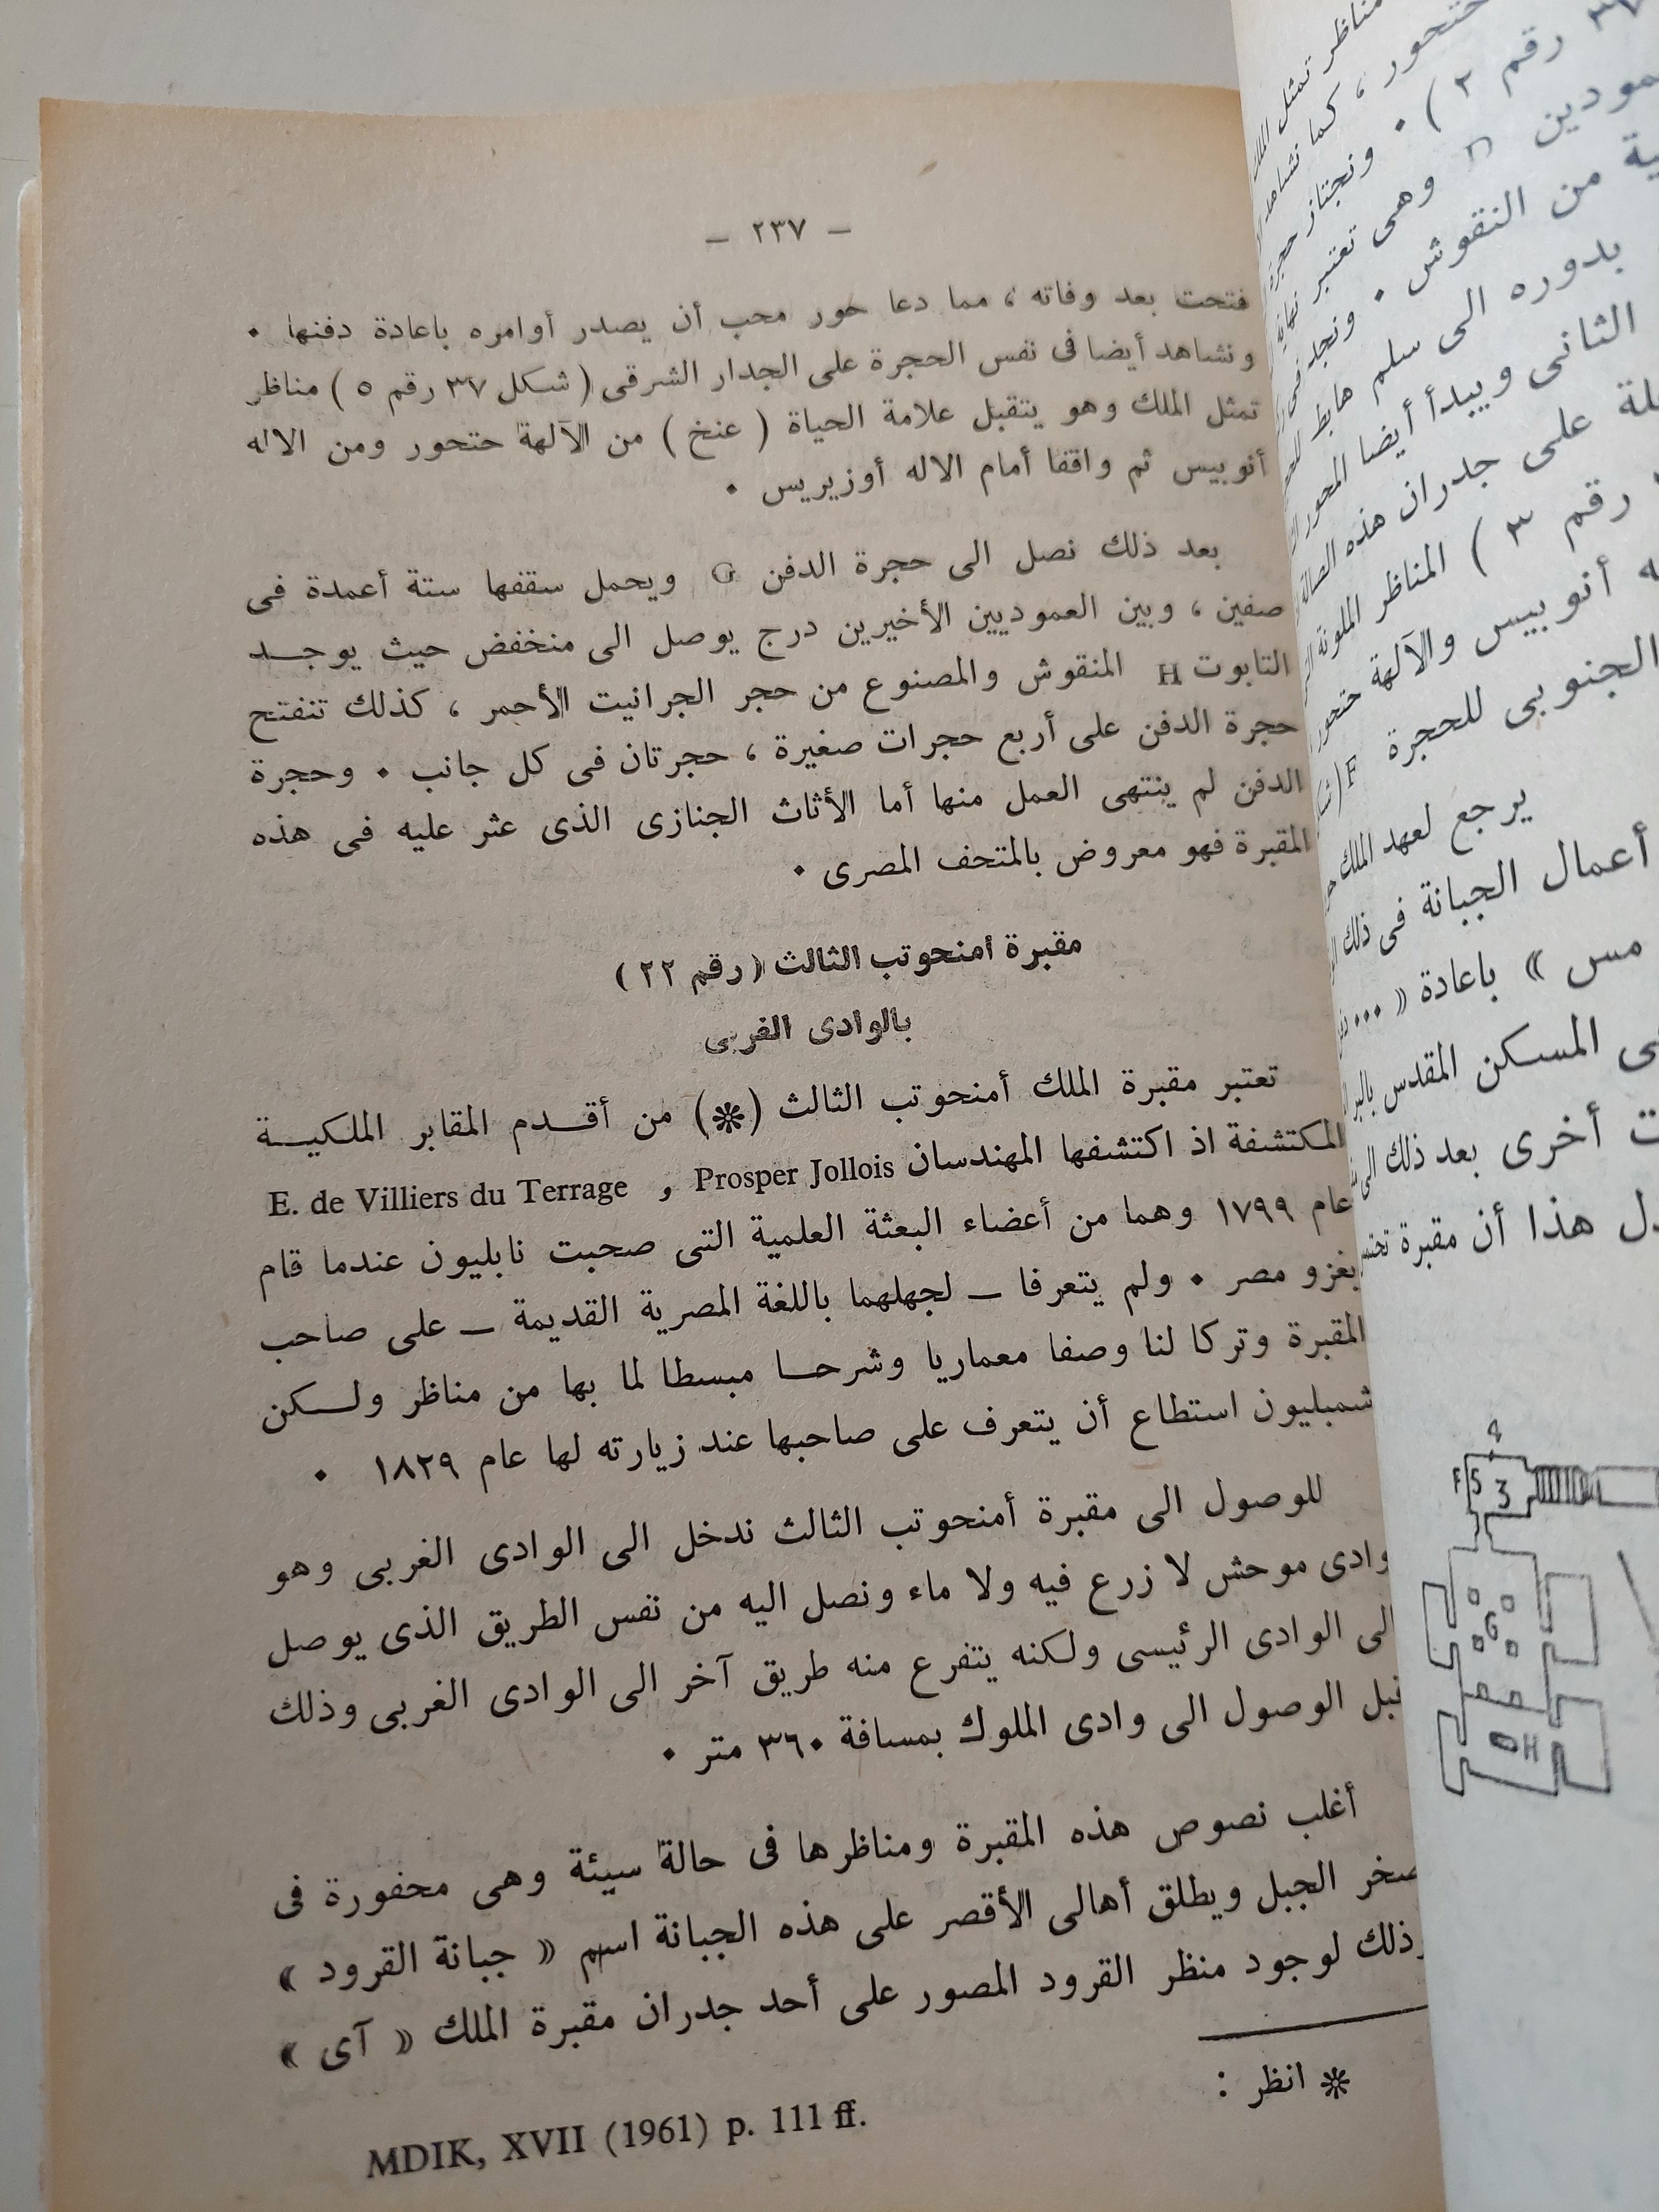 — ٢٣٧ —
فتحت بعد وفاته ، مما دعا حور محب أن يصدر أوامره باعادة دفنها ٠
ونشاهد أيضا فى نفس الحجرة على الجدار الشرقى ( شكل ٣٧ رقم ٥ ) مناظر
تمثل الملك وهو يتقبل علامة الحياة ( عنخ ) من الآلهة حتحور ومن الاله
أنوبيس ثم واقفا أمام الاله أوزيريس ٠
بعد ذلك نصل الى حجرة الدفن G ويحمل سقفها ستة أعمدة فى
صفين ، وبين العموديين الأخيرين درج يوصل الى منخفض حيث يوجد
التابوت H المنقوش والمصنوع من حجر الجرانيت الأحمر ، كذلك تنفتح
حجرة الدفن على أربع حجرات صغيرة ، حجرتان فى كل جانب ٠ وحجرة
الدفن لم ينتهى العمل منها أما الأثاث الجنازى الذى عثر عليه فى هذه
المقبرة فهو معروض بالمتحف المصرى ٠
مقبرة امنحوتب الثالث ( رقم ٢٢ )
بالوادى الغربى
تعتبر مقبرة الملك أمنحوتب الثالث (✻) من أقدم المقابر الملكية
المكتشفة اذ اكتشفها المهندسان Prosper Jollois و E. de Villiers du Terrage
عام ١٧٩٩ وهما من أعضاء البعثة العلمية التى صحبت نابليون عندما قام
بغزو مصر ٠ ولم يتعرفا — لجهلهما باللغة المصرية القديمة — على صاحب
المقبرة وتركا لنا وصفا معماريا وشرحا مبسطا لما بها من مناظر ولكن
شمبليون استطاع أن يتعرف على صاحبها عند زيارته لها عام ١٨٢٩ ٠
للوصول الى مقبرة أمنحوتب الثالث ندخل الى الوادى الغربى وهو
وادى موحش لا زرع فيه ولا ماء ونصل اليه من نفس الطريق الذى يوصل
الى الوادى الرئيسى ولكنه يتفرع منه طريق آخر الى الوادى الغربى وذلك
قبل الوصول الى وادى الملوك بمسافة ٣٦٠ متر ٠
أغلب نصوص هذه المقبرة ومناظرها فى حالة سيئة وهى محفورة فى
صخر الجبل ويطلق أهالى الأقصر على هذه الجبانة اسم « جبانة القرود »
وذلك لوجود منظر القرود المصور على أحد جدران مقبرة الملك « آى »
✻ انظر :
MDIK, XVII (1961) p. 111 ff.
مناظر تمثل
حتحور ، كما نشاهد
رقم ٢ ) ٠ ونجتاز حجرة
وهى تعتبر نهاية
من النقوش ٠ ونجد فى
بدوره الى سلم هابط
الثانى ويبدأ أيضا المحور
على جدران هذه الصالة
رقم ٣ ) المناظر الملونة
أنوبيس والآلهة حتحور
الجنوبى للحجرة F
يرجع لعهد الملك
أعمال الجبانة فى ذلك
مس » باعادة « ...
المسكن المقدس
أخرى بعد ذلك الى
هذا أن مقبرة
4
F 5 3
G
H